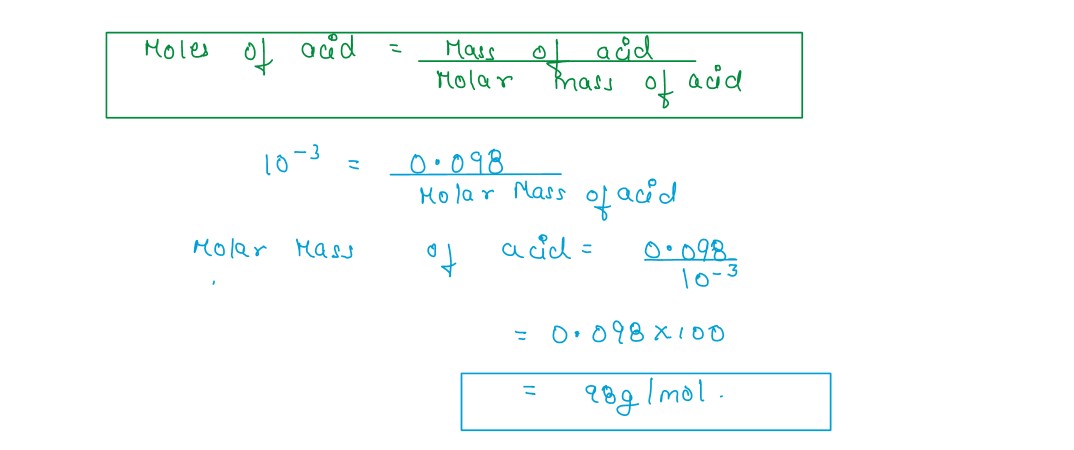 Moles of acid = Mass of acid / Molar mass of acid
10⁻³ = 0.098 / Molar Mass of acid
Molar Mass of acid = 0.098 / 10⁻³
= 0.098 × 100
= 98g/mol.